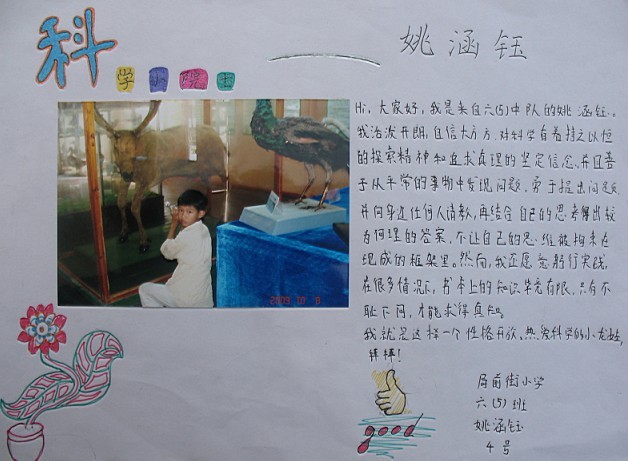 科
学小院士
姚涵钰
Hi, 大家好, 我是来自六(5)中队的姚涵钰。
我活泼开朗, 自信大方, 对科学有着持之以恒
的探索精神和追求真理的坚定信念, 并且善
于从平常的事物中发现问题, 勇于提出问题,
并向身边任何人请教, 再结合自己的思考解出较
为合理的答案, 不让自己的思维被拘束在
现成的框架里。然而, 我还愿意躬行实践,
在很多情况下, 书本上的知识毕竟有限, 只有不
耻下问, 才能求得真知。
我就是这样一个性格开放、热爱科学的小龙娃,
拜拜!
局前街小学
六(5)班
姚涵钰
4号
good
2009 10 9